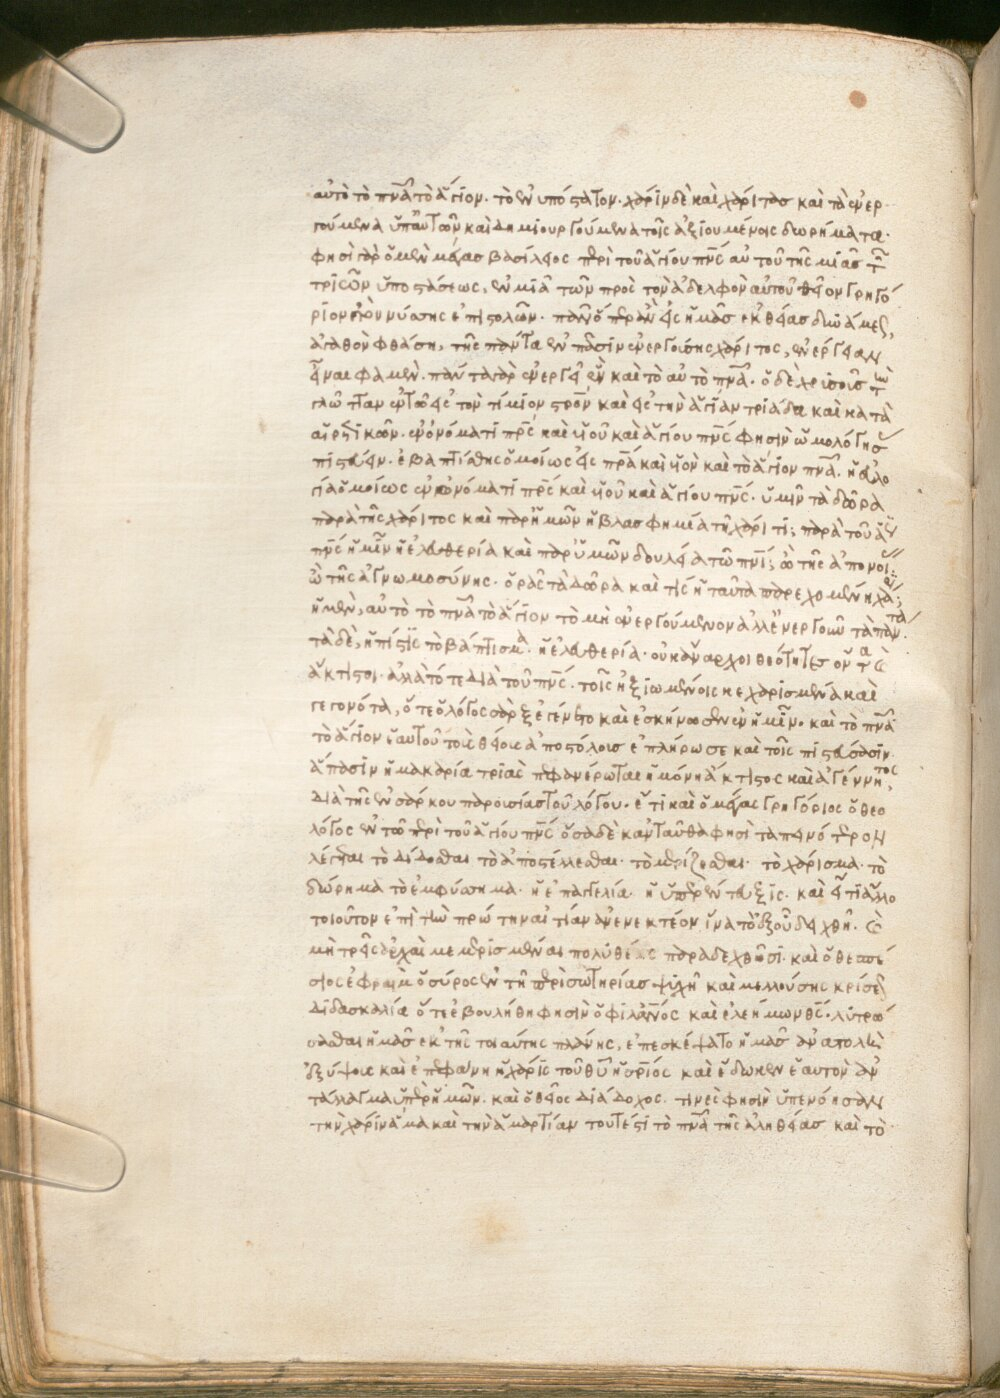 αὐτὸ τὸ πνᾶ τὸ ἅγιον· τὸ ἐνυπόστατον· χάριν δὲ καὶ χάριτας καὶ τὰ ἐνερ
γούμενα ὑπ' αὐτῶν καὶ δημιουργούμενα τοῖς ἀξιουμένοις δωρήματα·
φησὶ γὰρ ὁ μὲν μέγας βασίλειος περὶ τοῦ ἁγίου πνς αὐτοῦ τῆς μιᾶς τῶν
τριῶν ὑποστάσεως, ἐν μιᾷ τῶν πρὸς τὸν ἀδελφὸν αὐτοῦ θεῖον γρηγό
ριον τὸν νύσσης ἐπιστολῶν· πᾶν ὅπερ ἂν εἰς ἡμᾶς ἐκ θείας δυνάμε
ἀγαθὸν φθάσῃ, τῆς πάντα ἐν πᾶσιν ἐνεργούσης χάριτος, ἐνέργειαν
εἶναι φαμὲν· πάντα γὰρ ἐνεργεῖ ἓν καὶ τὸ αὐτὸ πνᾶ· ὁ δὲ χρυσοῦς τὴν
γλῶτταν ἐν τῷ εἰς τὸν τίμιον στρὸν καὶ εἰς τὴν ἁγίαν τριάδα καὶ κατὰ
αἱρετικῶν· ἐν ὀνόματι πρς καὶ υἱοῦ καὶ ἁγίου πνς φησὶν ὡμολόγησ
πιστεύειν· ἐβαπτίσθης ὁμοίως εἰς πρα καὶ υἱὸν καὶ τὸ ἅγιον πνᾶ· ἡ εὐλο
γία ὁμοίως ἐν ὀνόματι πρς καὶ υἱοῦ καὶ ἁγίου πνς· ὑμῖν τὰ δῶρα
παρὰ τῆς χάριτος καὶ παρ' ἡμῶν ἡ βλασφημία τῇ χάριτι; παρὰ τοῦ ἁγ
πνς ἡμῖν ἡ ἐλευθερία καὶ παρ' ὑμῶν δουλεία τῷ πνι; ὢ τῆς ἀπονοί
ὢ τῆς ἀγνωμοσύνης· ὁρᾷς τὰ δῶρα καὶ τίς ἡ ταῦτα παρεχομένη χά
ἡ μὲν, αὐτὸ τὸ πνᾶ τὸ ἅγιον τὸ μὴ ἐνεργούμενον ἀλλ' ἐνεργοῦν τὰ πάντα
τὰ δὲ, ἡ πίστις τὸ βάπτισμα· ἡ ἐλευθερία· οὐκ ἄναρχοι θεότητες οὖν
ἄκτιστοι· ἀλλὰ τό τε διὰ τοῦ πνς· τοῖς ἠξιωμένοις κεχαρισμένα καὶ
γεγονότα, ὅτε ὁ λόγος σὰρξ ἐγένετο καὶ ἐσκήνωσεν ἐν ἡμῖν· καὶ τὸ πνᾶ
τὸ ἅγιον ἑαυτοῦ τοὺς θείους ἀποστόλους ἐπλήρωσε καὶ τοῖς πιστεύσασιν
ἅπασιν ἡ μακαρία τριὰς πεφανέρωται ἡ μόνη ἄκτιστος καὶ ἀγέννητος
διὰ τῆς ἐνσάρκου παρουσίας τοῦ λόγου· ἔτι καὶ ὁ μέγας γρηγόριος ὁ θεο
λόγος ἐν τῷ περὶ τοῦ ἁγίου πνς ὅσα δὲ κἀνταῦθα φησὶ ταπεινότερον
λέγεται τὸ δίδοσθαι τὸ ἀποστέλλεσθαι· τὸ μερίζεσθαι· τὸ χάρισμα· τὸ
δώρημα τὸ ἐμφύσημα· ἡ ἐπαγγελία· ἡ ὑπερέντευξις· καὶ εἴ τι ἄλλο
τοιοῦτον ἐπὶ τὴν πρώτην αἰτίαν ἀνενεκτέον ἵνα τὸ ἐξ οὗ δειχθῇ· καὶ
μὴ τρεῖς ἀρχαὶ μεμερισμέναι πολυθέως παραδεχθῶσι· καὶ ὁ θεσπέ
σιος ἐφραὶμ ὁ σύρος ἐν τῇ περὶ σωτηρίας ψυχῆ καὶ μελλούσης κρίσε
διδασκαλία ὅτε ἐβουλήθη φησὶν ὁ φιλάνος καὶ ἐλεήμων θς· λυτρώ
σασθαι ἡμᾶς ἐκ τῆς τοιαύτης πλάνης, ἐπεσκέψατο ἡμᾶς ἀνατολὴ
ἐξ ὕψους καὶ ἐπεφάνη ἡ χάρις τοῦ θυ ἡ σριος καὶ ἔδωκεν ἑαυτὸν ἀν
τάλλαγμα ὑπὲρ ἡμῶν· καὶ ὁ θεῖος διάδοχος· τινὲς φησὶν ὑπενόησαν
τὴν χάριν ἅμα καὶ τὴν ἁμαρτίαν τουτέστι τὸ πνᾶ τῆς ἀληθείας καὶ τὸ